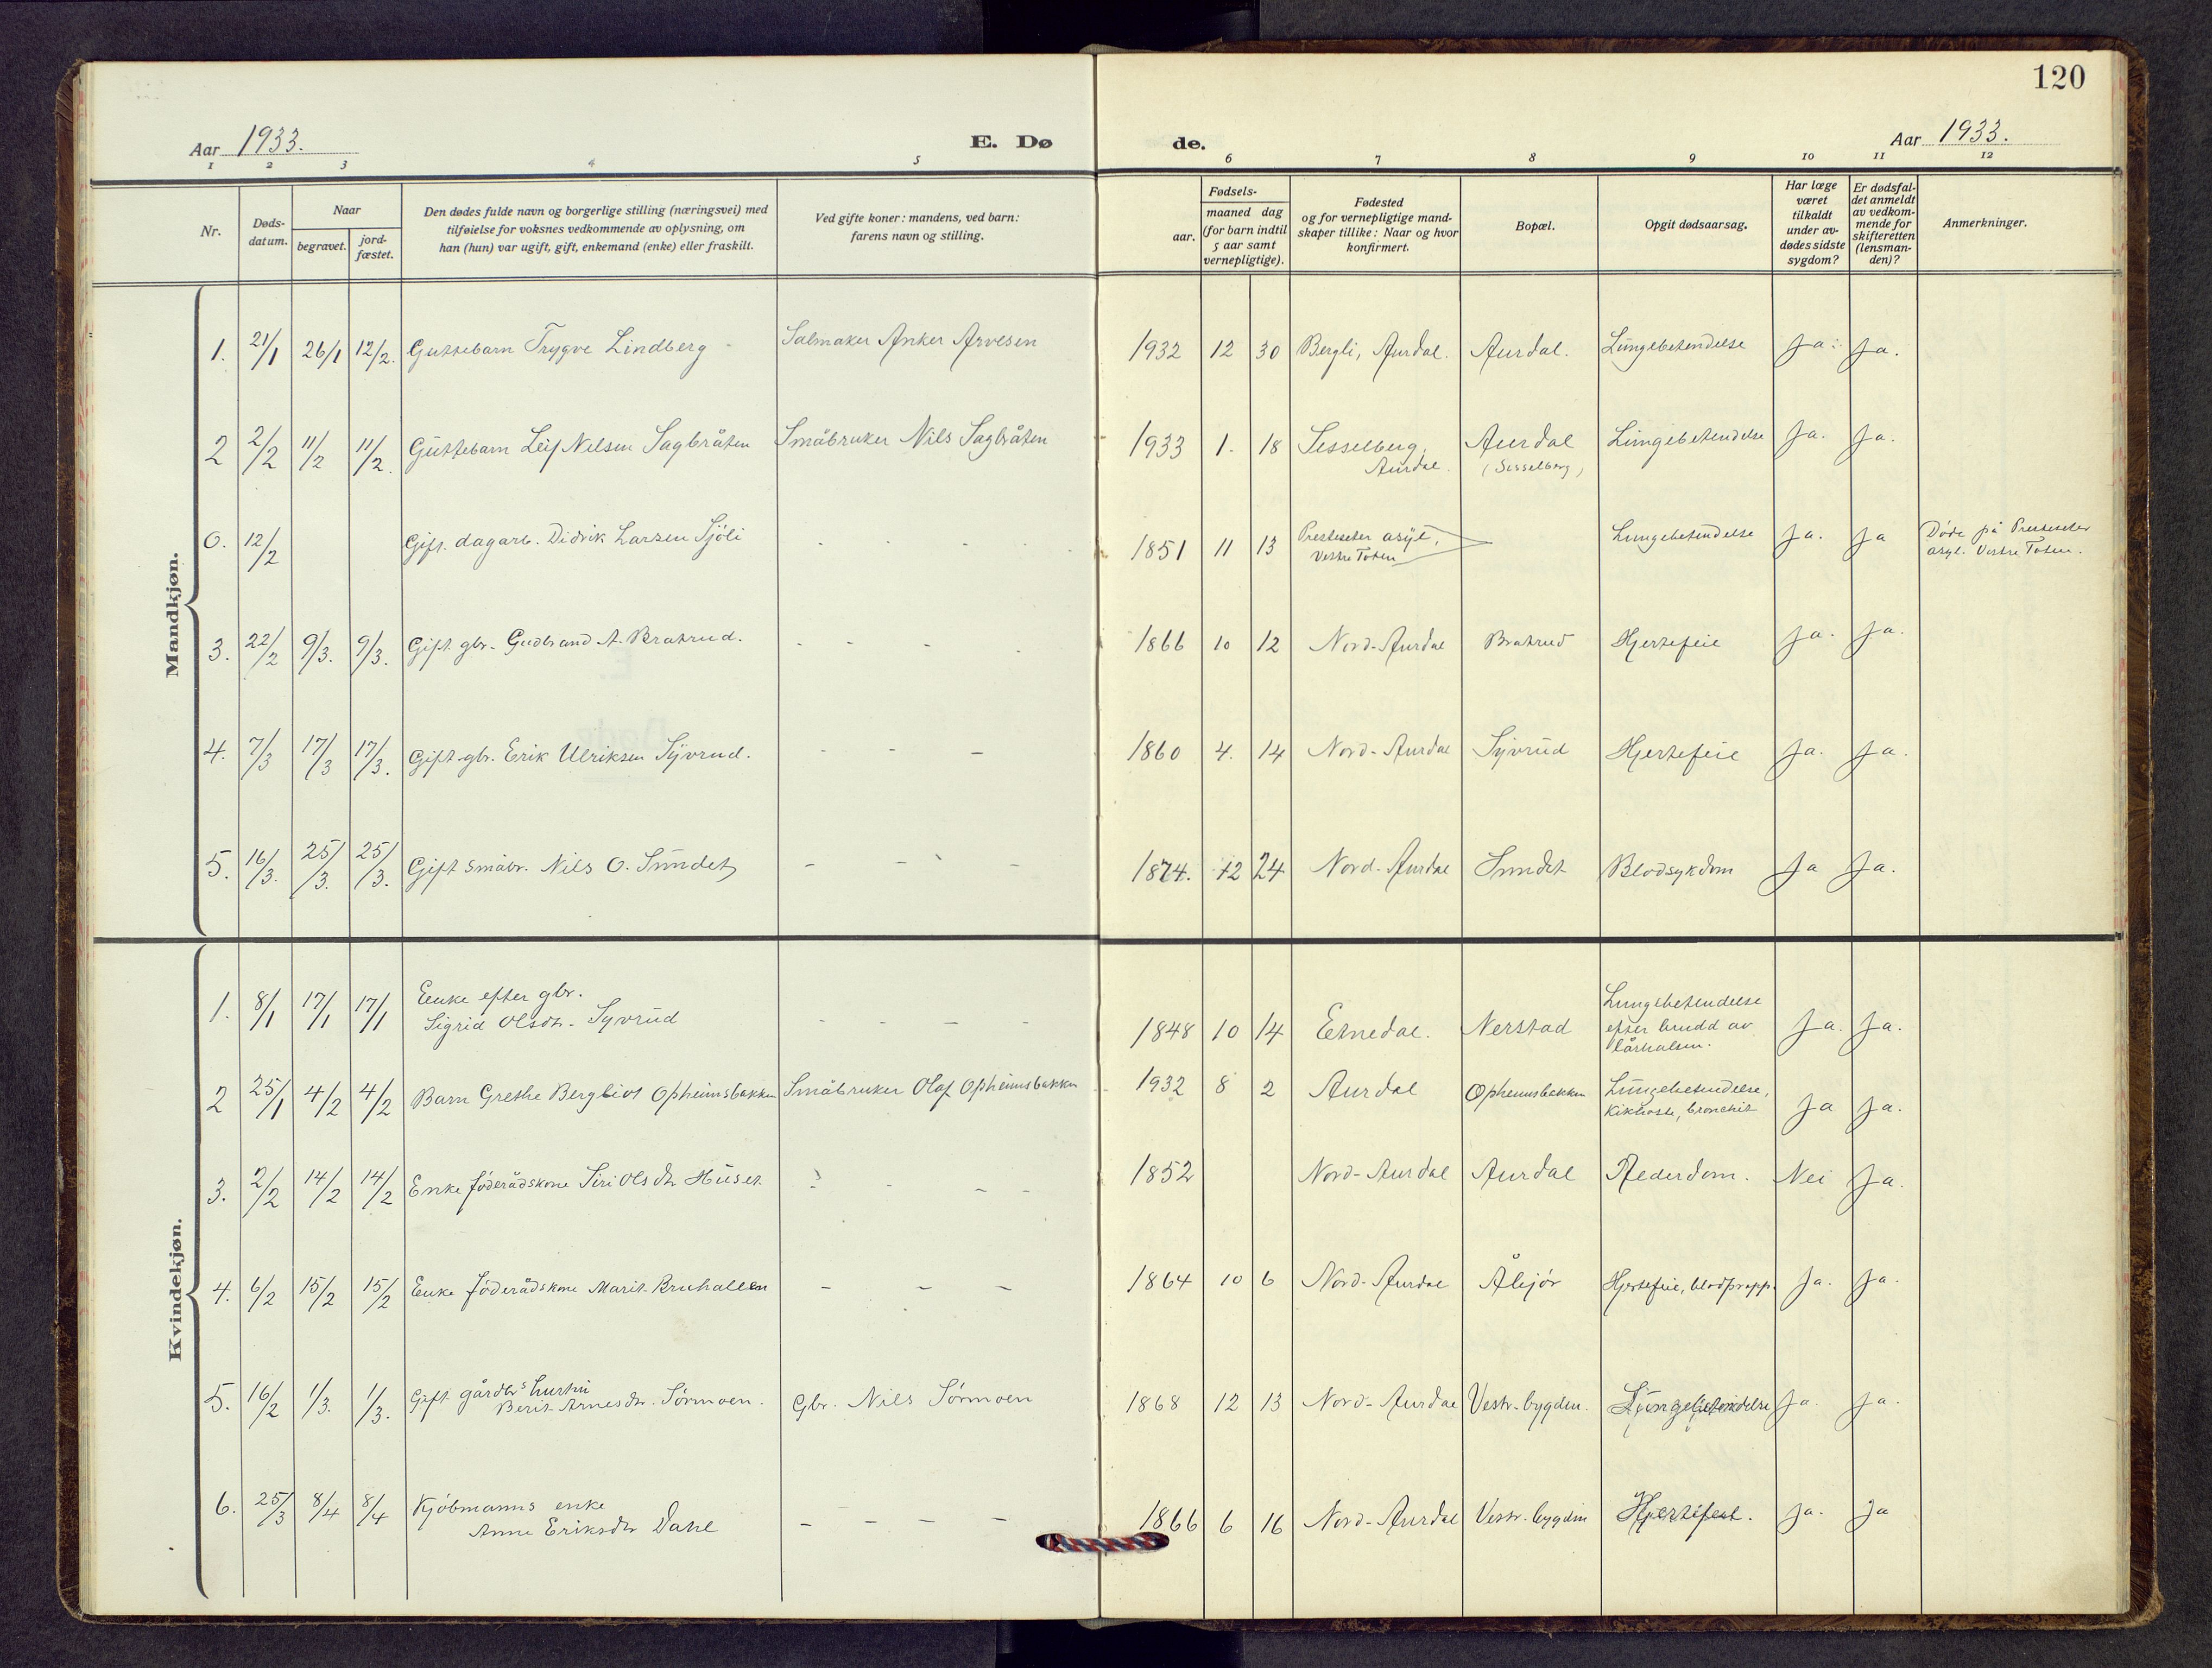 120
Aar 1933.
E. Døde.
Aar 1933.
1 2 3 4 5 6 7 8 9 10 11 12
Nr.
Døds-
datum.
Naar
begravet.
jord-
fæstet.
Den dødes fulde navn og borgerlige stilling (næringsvei) med
tilføielse for voksnes vedkommende av oplysning, om
han (hun) var ugift, gift, enkemand (enke) eller fraskilt.
Ved gifte koner: mandens, ved barn:
farens navn og stilling.
Fødsels-
aar.
maaned dag
(for barn indtil
5 aar samt
vernepligtige).
Fødested
og for vernepligtige mand-
skaper tillike: Naar og hvor
konfirmert.
Bopæl.
Opgit dødsaarsag.
Har læge
været
tilkaldt
under av-
dødes sidste
sygdom?
Er dødsfal-
det anmeldt
av vedkom-
mende for
skifteretten
(lensman-
den)?
Anmerkninger.
Mandkjøn.
1. 21/1 26/1 12/2. Guttebarn Trygve Lindberg Salmaker Anker Arvesen 1932 12 30 Bergli, Aurdal. Aurdal. Lungebetendelse Ja. Ja.
2 2/2 11/2 11/2. Guttebarn Leif Nilsen Sagbråten Småbruker Nils Sagbråten 1933 1. 18 Sesselberg, Aurdal Lungebetendelse Ja. Ja.
Aurdal. (Sesselberg)
0. 12/2 Gift. dagarb. Didrik Larsen Sjöli - - - - 1851 11 13 Presteseter asyl, - Lungebetendelse Ja. Ja Döde på Presteseter
Vestre Toten asyl. Vestre Toten.
3. 22/2 9/3. 9/3. Gift gbr. Gudbrand A. Bratrud. - - - - 1866 10 12 Nord-Aurdal Bratrud Hjertefeil Ja. Ja.
4. 7/3 17/3 17/3. Gift gbr. Erik Ulriksen Syvrud. - - - 1860 4. 14 Nord-Aurdal Syvrud Hjertefeil Ja. Ja.
5. 16/3. 25/3. 25/3. Gift småbr. Nils O. Sundet - - - 1874. 12 24 Nord-Aurdal Sundet Blodsykdom Ja Ja.
Kvindekjøn.
1. 8/1 17/1 17/1 Enke efter gbr.
Sigrid Olsdtr. Syvrud - - - - 1848 10 14 Etnedal. Nerstad Lungebetendelse
efter brudd av
lårhalsen. Ja. Ja.
2 25/1 4/2 4/2 Barn Grethe Bergliot Opheimsbakken Småbruker Olaf Opheimsbakken 1932 8 2 Aurdal Opheimsbakken Lungebetendelse,
kikhoste, bronchit Ja Ja.
3. 2/2 14/2 14/2 Enke föderådskone Siri Olsdtr Huset - - - - 1852 Nord-Aurdal Aurdal Alderdom. Nei Ja.
4. 6/2 15/2 15/2 Enke föderådskone Marit Bruhallen - - - 1864 10 6 Nord-Aurdal Ålsjör Hjertefeil, blodpropp. Ja. Ja.
5. 16/2 1/3. 1/3. Gift gårdbrs hustru
Berit Arnesdtr. Sörmoen. Gbr. Nils Sörmoen 1868 12 13 Nord-Aurdal Vestr. bygden. Lungebetendelse Ja. Ja.
6. 25/3 8/4 8/4 Kjöbmanns enke
Anne Eriksdtr Dahl - - - - 1866 6 16 Nord-Aurdal Vestr. bygden Hjertefeil. Ja. Ja